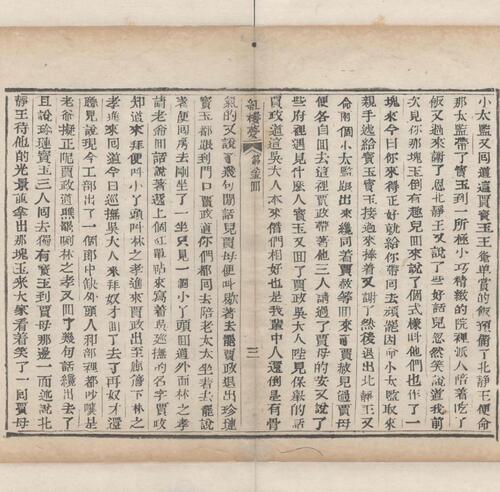 小太監又回道寶玉王爺單賞的飯預備了北靜王便命
那太監帶了寶玉到一所極小巧精緻的院裡派人陪着吃了
飯又過來謝了恩北靜王又說了些好話兒忽然笑說道我前
次見你那塊玉倒有趣兒回來說了個式樣叫他們也作了一
塊來今日你來得正好就給你帶回去頑罷因命小太監取來
親手遞給寶玉寶玉接過來捧着又謝了然後退出北靜王又
命兩個小太監跟出來纔同着賈赦等回來了賈赦見過賈母
便各自回去這裡賈政帶著他三人請過了賈母的安又說了
些府裡遇見什麽人寶玉又回了賈政吳大人陛見保舉的話
賈政道這吳大人本來偺們相好也是我輩中人還倒是有骨
紅樓夢 第八五回 三
氣的又說了幾句閒話兒賈母便叫歇著去罷賈政退出珍璉
寶玉都跟到門口賈政道你們都回去陪老太太坐着去罷說
著便回房去剛坐了一坐只見一個小丫頭回道外面林之孝
請老爺回話說著遞上個紅單貼來寫着吳巡撫的名字賈政
知道來拜便叫小丫頭叫林之孝進來賈政出至廊簷下林之
孝進來回道今日巡撫吳大人來拜奴才回了去了再奴才還
聽見說現今工部出了一個郎中缺外頭人和部裡都吵嚷是
老爺擬正呢賈政道瞧罷咧林之孝又回了幾句話纔出去了
且說珍璉寶玉三人回去獨有寶玉到賈母那邊一面述說北
靜王待他的光景並拿出那塊玉來大家看着笑了一回賈母